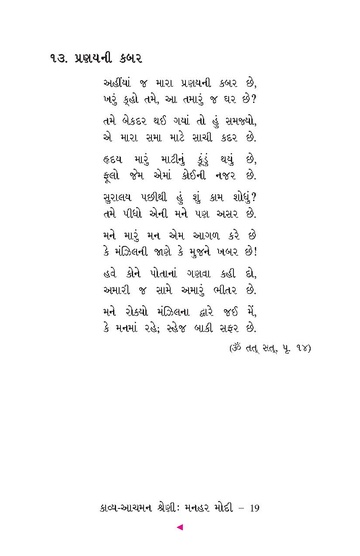 ૧૩. પ્રણયની કબર
અહીંયાં જ મારા પ્રણયની કબર છે,
ખરું કહો તમે, આ તમારું જ ઘર છે?
તમે બેકદર થઈ ગયાં તો હું સમજ્યો,
એ મારા સમા માટે સાચી કદર છે.
હૃદય મારું માટીનું કૂંડું થયું છે,
ફૂલો જેમ એમાં કોઈની નજર છે.
સુરાલય પછીથી હું શું કામ શોધું?
તમે પીધો એની મને પણ અસર છે.
મને મારું મન એમ આગળ કરે છે
કે મંઝિલની જાણે કે મુજને ખબર છે!
હવે કોને પોતાનાં ગણવા કહી દો,
અમારી જ સામે અમારું ભીતર છે.
મને રોક્યો મંઝિલના દ્વારે જઈ મેં,
કે મનમાં રહે; સ્હેજ બાકી સફર છે.
(ૐ તત્ સત્, પૃ. ૧૪)
કાવ્ય-આચમન શ્રેણીઃ મનહર મોદી – 19